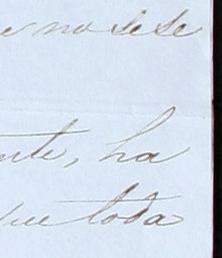 e no se se
nte, ha
que toda